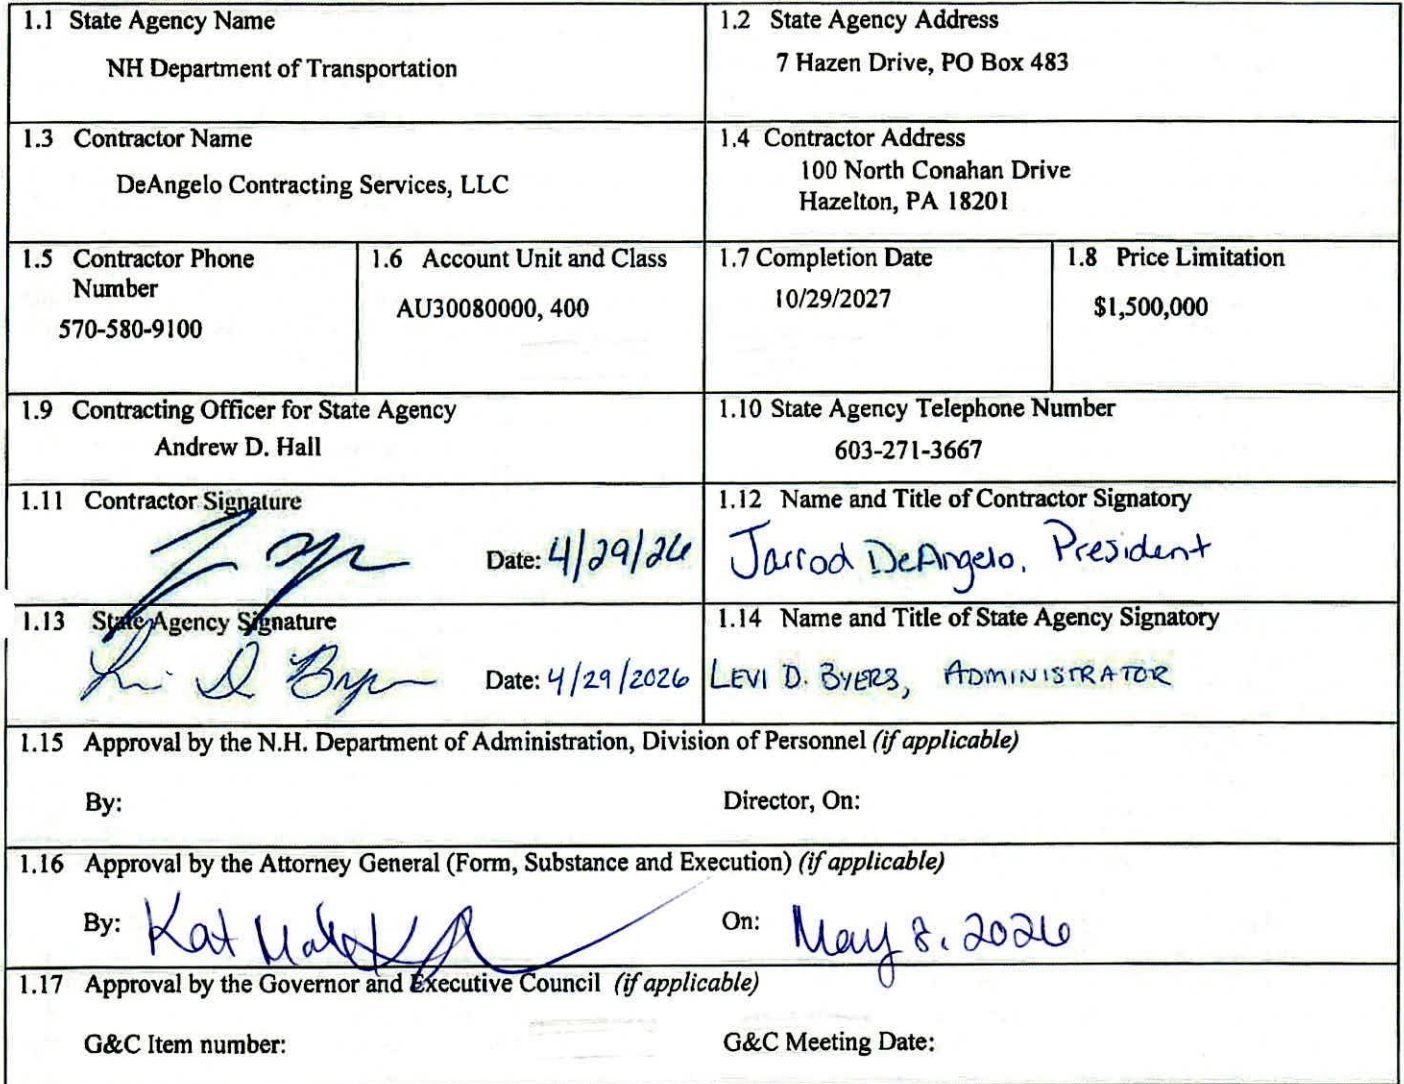 1.1 State Agency Name
NH Department of Transportation
1.2 State Agency Address
7 Hazen Drive, PO Box 483
1.3 Contractor Name
DeAngelo Contracting Services, LLC
1.4 Contractor Address
100 North Conahan Drive
Hazelton, PA 18201
1.5 Contractor Phone
Number
570-580-9100
1.6 Account Unit and Class
AU30080000, 400
1.7 Completion Date
10/29/2027
1.8 Price Limitation
$1,500,000
1.9 Contracting Officer for State Agency
Andrew D. Hall
1.10 State Agency Telephone Number
603-271-3667
1.11 Contractor Signature
Date: 4/29/26
1.12 Name and Title of Contractor Signatory
Jarrod DeAngelo, President
1.13 State Agency Signature
Date: 4/29/2026
1.14 Name and Title of State Agency Signatory
LEVI D. BYERS, ADMINISTRATOR
1.15 Approval by the N.H. Department of Administration, Division of Personnel (if applicable)
By:
Director, On:
1.16 Approval by the Attorney General (Form, Substance and Execution) (if applicable)
By: Kat
On: May 8, 2026
1.17 Approval by the Governor and Executive Council (if applicable)
G&C Item number:
G&C Meeting Date: